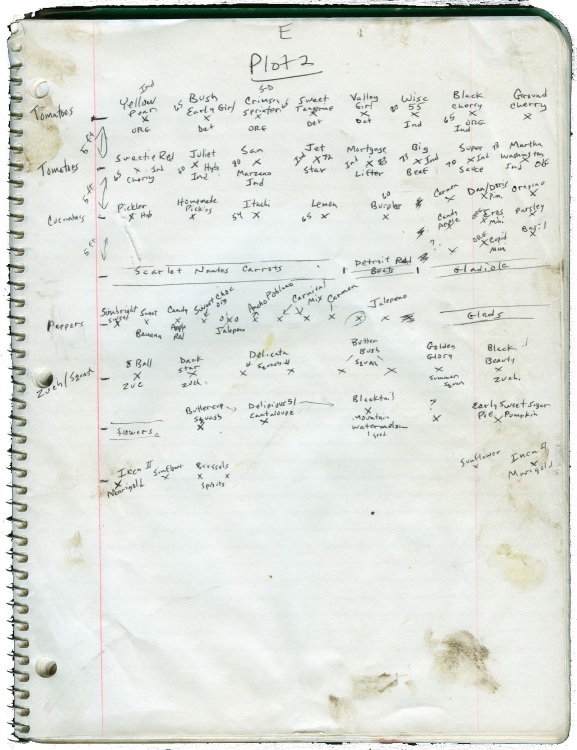 E
Plot 2
Ind S-D
Tomatoes Yellow Pear 65 Bush Early Girl Crimson Sprinter 65 Sweet Tangerine Valley Girl 80 Wisc 55 Black Cherry Ground Cherry
x x x x x x x x
ORG Det ORG Det Det Ind 65 ORG Ind
5 FT
Tomatoes Sweetie Red Juliet San Jet Mortgage Big Super Martha
65 x Ind x Hyb 80 x Ind x 72 Ind x 83 x Ind 90 x Ind x Washington
Cherry Ind Marzano Ind Star Lifter Beef Ind
5 FT
Carmen Oregino
Cucumbers Pickler Homemade Pickles Itachi Lemon 60 Burpless Candy Apple Eros Mini Parsley
x Hyb x 54 x 65 x x x x x
ORG Cupid Mini Basil
? x x x
5 FT
Scarlet Nantes Carrots Detroit Red Beets Gladiola
Peppers Sweet Banana Candy Apple Red Sweet Choc ORG Jalepeno Ancho Poblano Carnival Mix Carmen Jalepeno Glads
8 Ball Dark Star Delicata Squash Button Bush Squash Golden Glory Black Beauty
Zuch/Squash x x x x x x x x
Zuc Zuch. Summer Squash Zuch.
Buttercup Squash Delicious 51 Cantaloupe Blacktail Mountain Watermelon ? Early Sweet Sugar Pie Pumpkin
x x x x x
Flowers
Inca II Marigold Sunflower Brussels Sprouts Sunflower Inca II Marigold
x x x x x x